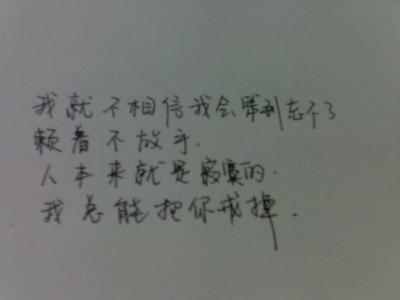 我就不相信我会到忘不了
赖着不放手.
人本来就是寂寞的.
我总能把你戒掉.